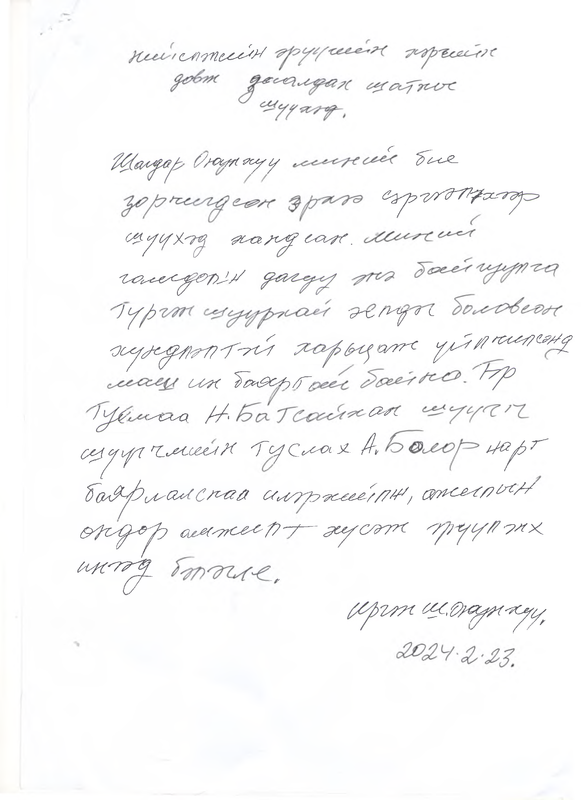 Нийслэлийн эрүүгийн хэргийн
давж заалдах шатны
шүүхэд.
Шагдар Оюунхүү миний бие
зөрчигдсөн эрхээ сэргээлгэхээр
шүүхэд хандсан. Миний
гомдлын дагуу тэ байгууллга
түргэн шуурхай эелдэг боловсон
хүндлэлтэй харьцаж үйлчилсэнд
маш их баяртай байна. Гэр
Туяамаа Н.Батсайхан шүүгч
шүүгчийн туслах А.Болор нарт
баярлалснаа илэрхийлэн, ажлын
өндөр амжилт хүсэж эрүүлжх
инээд бэлэглэе.
Иргэн Ш.Оюунхүү.
2024.2.23.